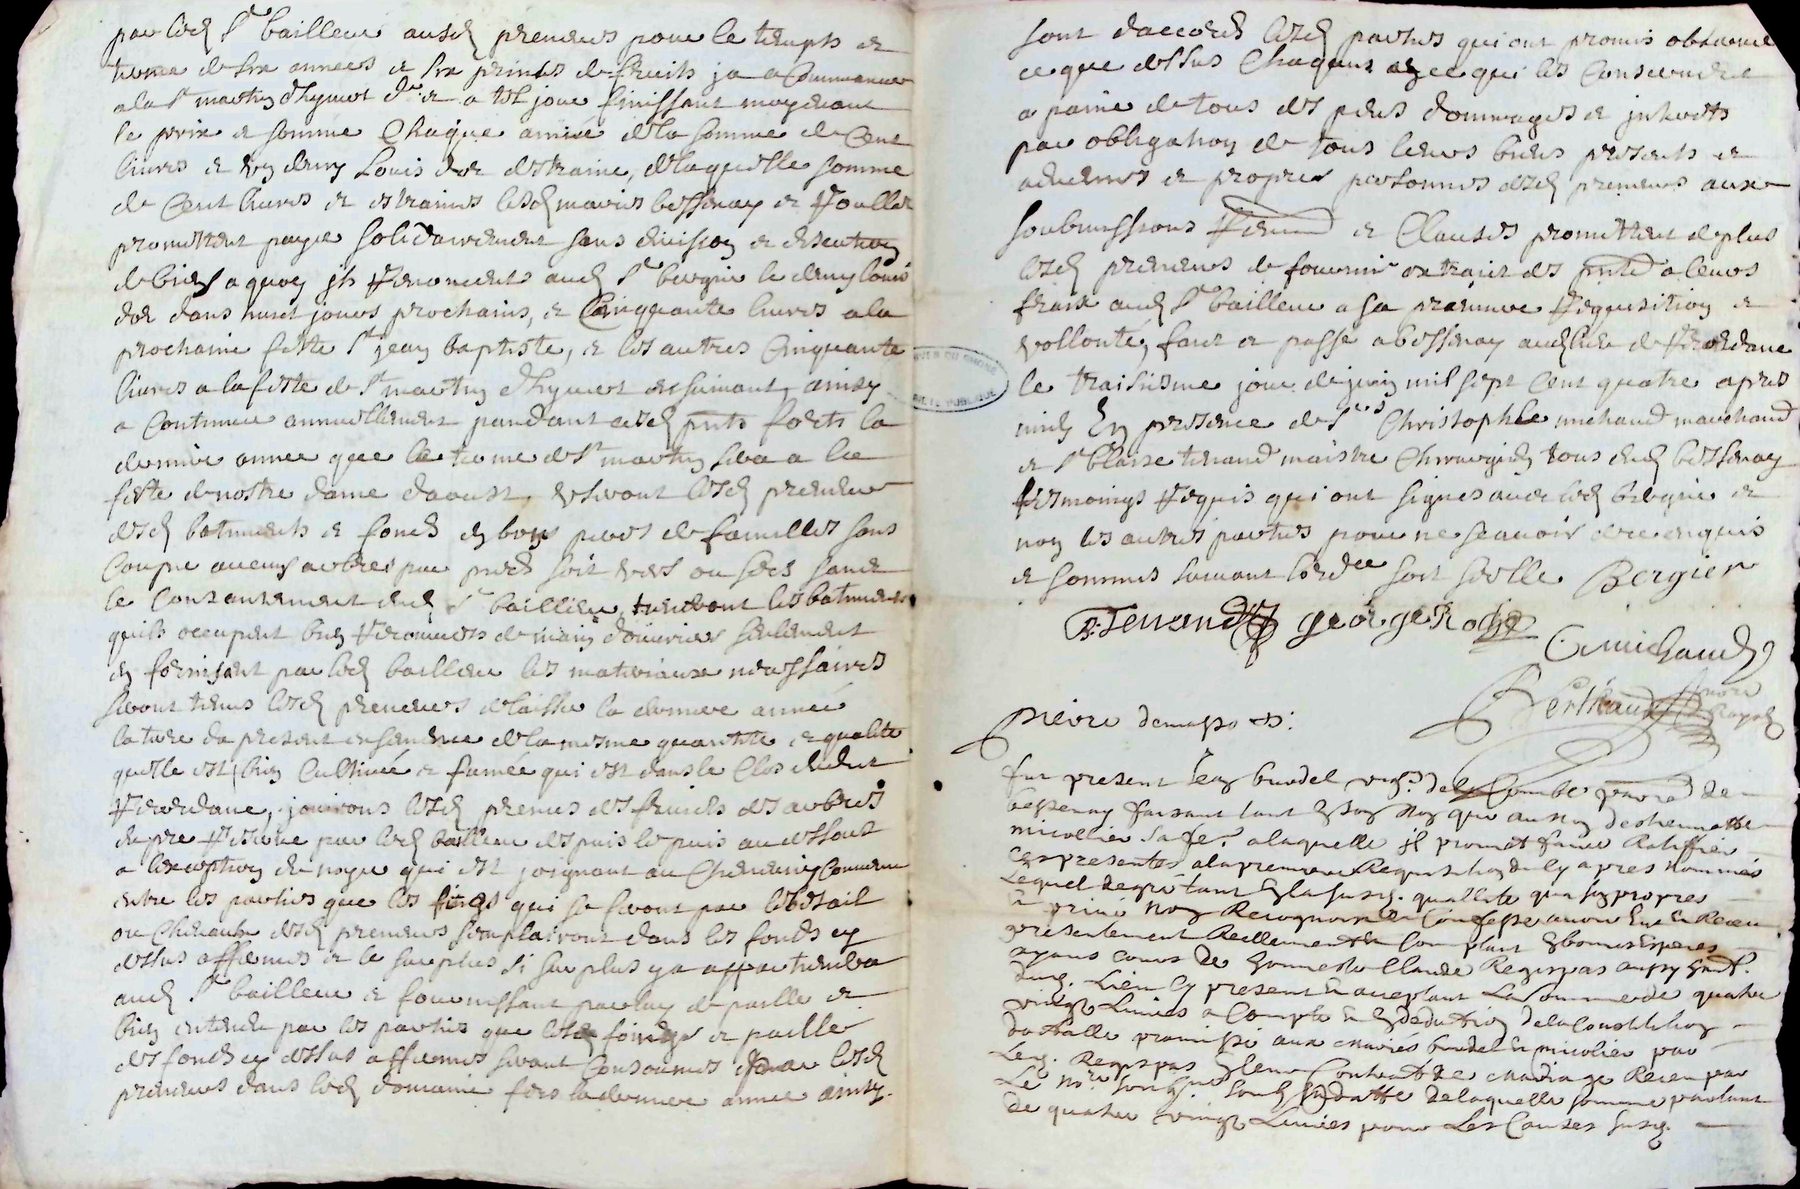 par led. Sr bailleur ausd. preneurs pour le temps et
terme de six années et six prinses de fruits ja a Commancer
a la St martin d'hyvert der et a tel jour finissant moyenant
le prix et somme Chaque année de la somme de Cent
livres et un demy Louis dor destraine, de laquelle somme
de Cent livres et estraines lesd. mariés bessenay et
promettent payer solidairement sans division et discution
de biens a quoy ils renoncent aud. Sr bergier le demy louis
dor dans huict jours prochains, et Cinquante livres a la
prochaine feste St jean baptiste, et les autres Cinquante
livres a la feste de St martin d'hyvert ensuivant, ainsy
a Continuer annuellement pendant cesd. pnts forts la
derniere annee que le terme de St martin sera a la
feste de nostre dame daoust, useront lesd. preneurs
desd. batiments et fonds en bons peres de familles sans
Couper aucuns arbres par pied soit verds ou secs sans
le Consentement dud. Sr bailleur, tiendront les batiments
quils occupent bien de main d'ouvrier seulement
en fornissant par led. bailleur les materiaux necessaires
seront tenus lesd. preneurs de laisser la derniere année
la terre du present ensemencé de la mesme quantité et qualité
quelle est bien Cultivée et fumée qui est dans le Clos dudit
, jouiront lesd. preneurs des fruicts des arbres
du pre reservé par led. bailleur depuis le puis au dessous
a lexeption du noyer qui est joignant au Chemin, Convenu
entre les parties que les foings qui se feront par le bestail
ou Chevaux desd. preneurs semploiront dans les fonds cy
dessus affermés et le surplus si surplus y a appartiendra
aud. Sr bailleur et fournissant par luy de paille et
bien entendu par les parties que lesd. foings et paille
des fonds cy dessus affermés seront Consommés par lesd.
preneurs dans led. domaine fors la derniere annee ainsy
sont daccord lesd. parties qui ont promis observer
ce que dessus Chaqune en ce qui les Concerne et
a paine de tous despens dommages et interests
par obligation de tous leurs biens presents et
advenirs et propres personnes desd. preneurs aux
soubmissions et Clauses promettent de plus
lesd. preneurs de fournir extraict des pntes a leurs
fraix aud. Sr bailleur a sa premiere requisition et
vollonté, faict et passé a bessenay aud. lieu de
le traisiesme jour de juin mil sept Cent quatre apres
midy En presence de Sr Christophle michaud marchand
et Sr blaise tenand maistre Chirurgien tous dud. bessenay
tesmoings requis qui ont signés avec led. bergier et
non les autres parties pour ne scavoir de ce enquis
et sommés suivant lord.ce soit scelle Bergier
B: Tenand george Roche
C: michaud
Berthaud nore Royal
pierre demasso
fut present Jean burdel de la Combe parroisse de
bessenay faisant tant en son nom que au nom de
micollier sa fe. a laquelle il promet faire Ratiffier
ces presentes a la premiere Requisition du cy apres nommés
Lequel de gré tant en la susd. quallite quen son propre
et privé nom Recognoit et Confesse avoir Eu et Receu
presentement Reellement et Comptant En bonnes Especes
ayans cours de honneste Claude
dud. Lieu Cy present et acceptant La somme de quatre
vingt Livres a Compte et En deduction de la Constitution
dottalle promise aux mariés burdel et micolier par
Led. En leur Contract de mariage Receu par
Le nore soubsigné soubs sa datte de laquelle somme partant
de quatre vingt Livres pour Les Causes susd.